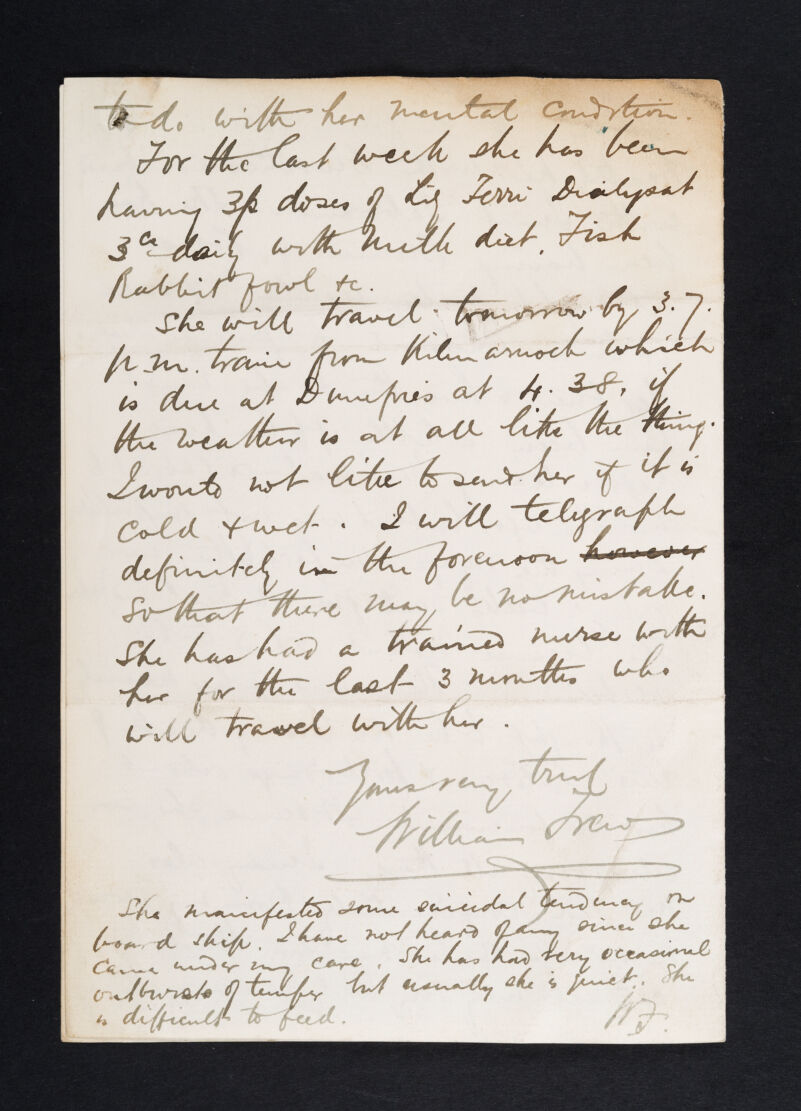 to do with her mental condition.
For the last week she has been
having 3ß doses of Liq Ferri Dialysat
3ce daily with milk diet, Fish
Rabbit fowl &c.
She will travel tomorrow by 3.7.
p.m. train from Kilmarnock which
is due at Dumfries at 4.38, if
the weather is at all like the thing.
I would not like to send her if it is
cold & wet. I will telegraph
definitely in the forenoon however
so that there may be no mistake.
She has had a trained nurse with
her for the last 3 months who
will travel with her.
Yours very truly
William Frew
She manifested some suicidal tendency on
board ship. I have not heard of any since she
came under my care. She has had very occasional
outbursts of temper but usually she is quiet. She
is difficult to feed.
WF.